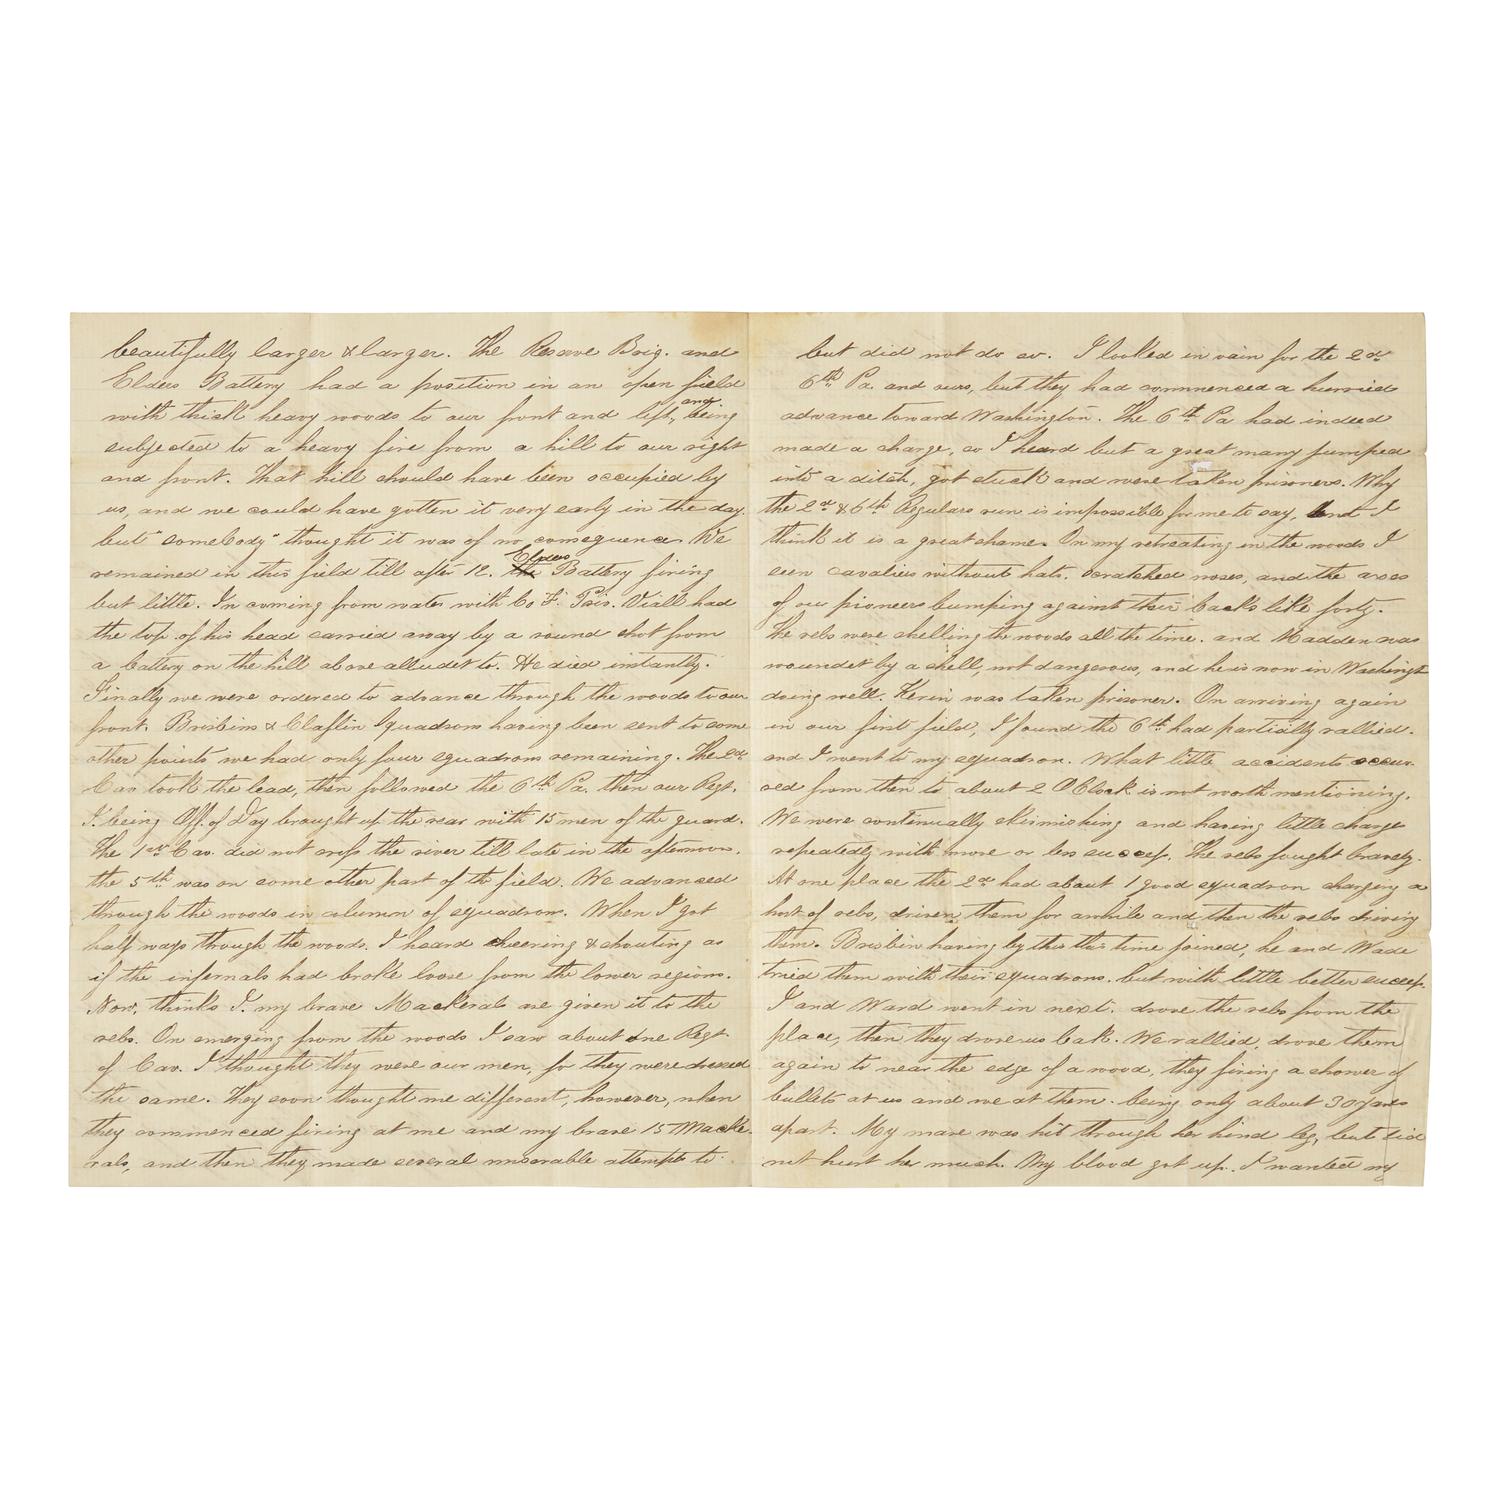 beautifully larger & larger. The Reserve Brig. and
Elders Battery had a position in an open field
with thick heavy woods to our front and left, and being
subjected to a heavy fire from a hill to our right
and front. That hill should have been occupied by
us, and we could have gotten it very early in the day.
but "somebody" thought it was of no consequence. We
remained in this field till after 12. the Elders Battery firing
but little. In coming from water with Co F. Priv. Viall had
the top of his head carried away by a round shot from
a battery on the hill above alludet to. He died instantly.
Finally we were ordered to advance through the woods to our
front. Brisbins & Claflin Squadrons having been sent to some
other points we had only four squadrons remaining. The 2d
Cav took the lead, then followed the 6th Pa. then our Regt.
I being Off. of Day brought up the rear with 15 men of the guard.
The 1st Cav. did not cross the river till late in the afternoon.
the 5th was on some other part of the field. We advanced
through the woods in column of squadrons. When I got
half ways through the woods. I heard cheering & shouting as
if the infernals had broke loose from the lower regions.
Now, thinks I. my brave Mackerals are given it to the
rebs. On emerging from the woods I saw about one Regt.
of Cav. I thought they were our men, for they were dressed
the same. They soon thought me different, however, when
they commenced firing at me and my brave 15 Macke-
rals, and then they made several miserable attempts to
but did not do so. I looked in vain for the 2d
6th Pa. and ours, but they had commenced a hurried
advance toward Washington. The 6th Pa had indeed
made a charge, so I heard but a great many jumped
into a ditch, got stuck and were taken prisoners. Why
the 2d & 6th Regulars run is impossible for me to say, and I
think it is a great shame. On my retreating in the woods I
seen cavaliers without hats. scratched noses, and the axes
of our pioneers bumping against their backs like forty.
The rebs were shelling the woods all the time. and Madden was
woundet by a shell, not dangerous, and he is now in Washingt
doing well. Kerin was taken prisoner. On arriving again
in our first field, I found the 6th had partially rallied.
and I went to my squadron. What little accidents occur-
red from then to about 2 O Clock is not worth mentioning.
We were continually skirmishing and having little charges
repeatedly with more or less success. The rebs fought bravely.
At one place the 2d had about 1 good squadron charging a
host of rebs, driven them for awhile and then the rebs driving
them. Brisbin having by this the time joined, he and Wade
tried them with their squadrons. but with little better success.
I and Ward went in next. drove the rebs from the
place, then they drove us back. We rallied, drove them
again to near the edge of a wood, they firing a shower of
bullets at us and we at them. being only about 30 yards
apart. My mare was hit through her hind leg, but did
not hurt her much. My blood got up. I wanted my